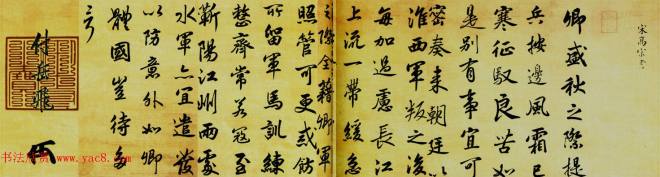 宋高宗
卿盛秋之際提
兵按邊風霜已
寒征馭良苦如
是別有事宜可
密奏来朝廷以
淮西軍叛之後
每加過慮長江
上流一帶緩急
之際全藉卿軍
照管可更戒飭
所留軍馬訓練
整齊常若寇至
蘄陽江州兩處
水軍亦宜遣發
以防意外如卿
體國豈待多
言
付岳飛
书法欣赏 www.yac8.com